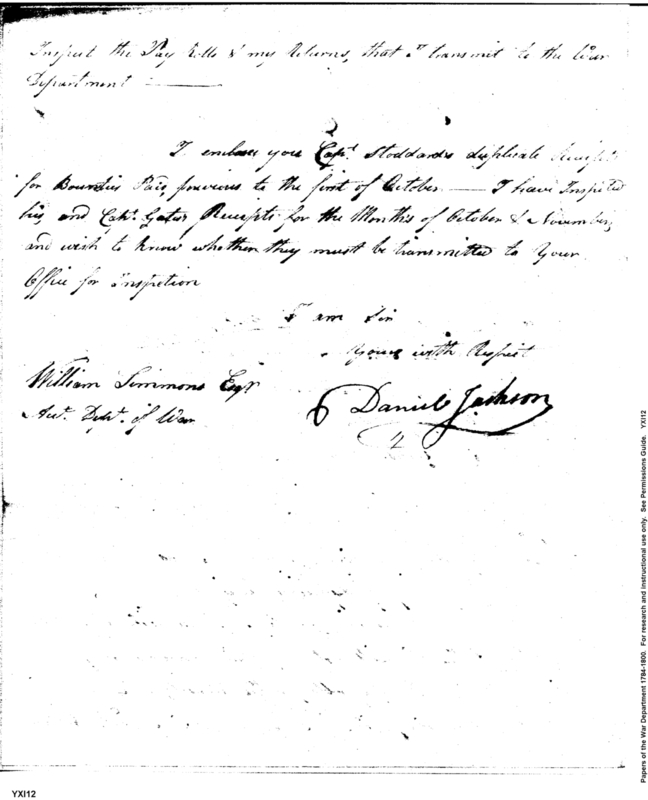 Inspect the Pay Rolls & my Returns, that I transmit to the War
Department
I enclose you Capt. Stoddards duplicate Receipts
for Bounties Paid previous to the first of October — I have Inspected
his, and Capt. Gates Receipts for the Months of October & November,
and wish to know whether they must be transmitted to Your
Office for Inspetion
I am Sir
Yours with Respect
William Simmons Esqr
Act. Dept. of War
Daniel Jackson
2
Papers of the War Department 1784-1800. For research and instructional use only. See Permissions Guide. YXI12
YXI12